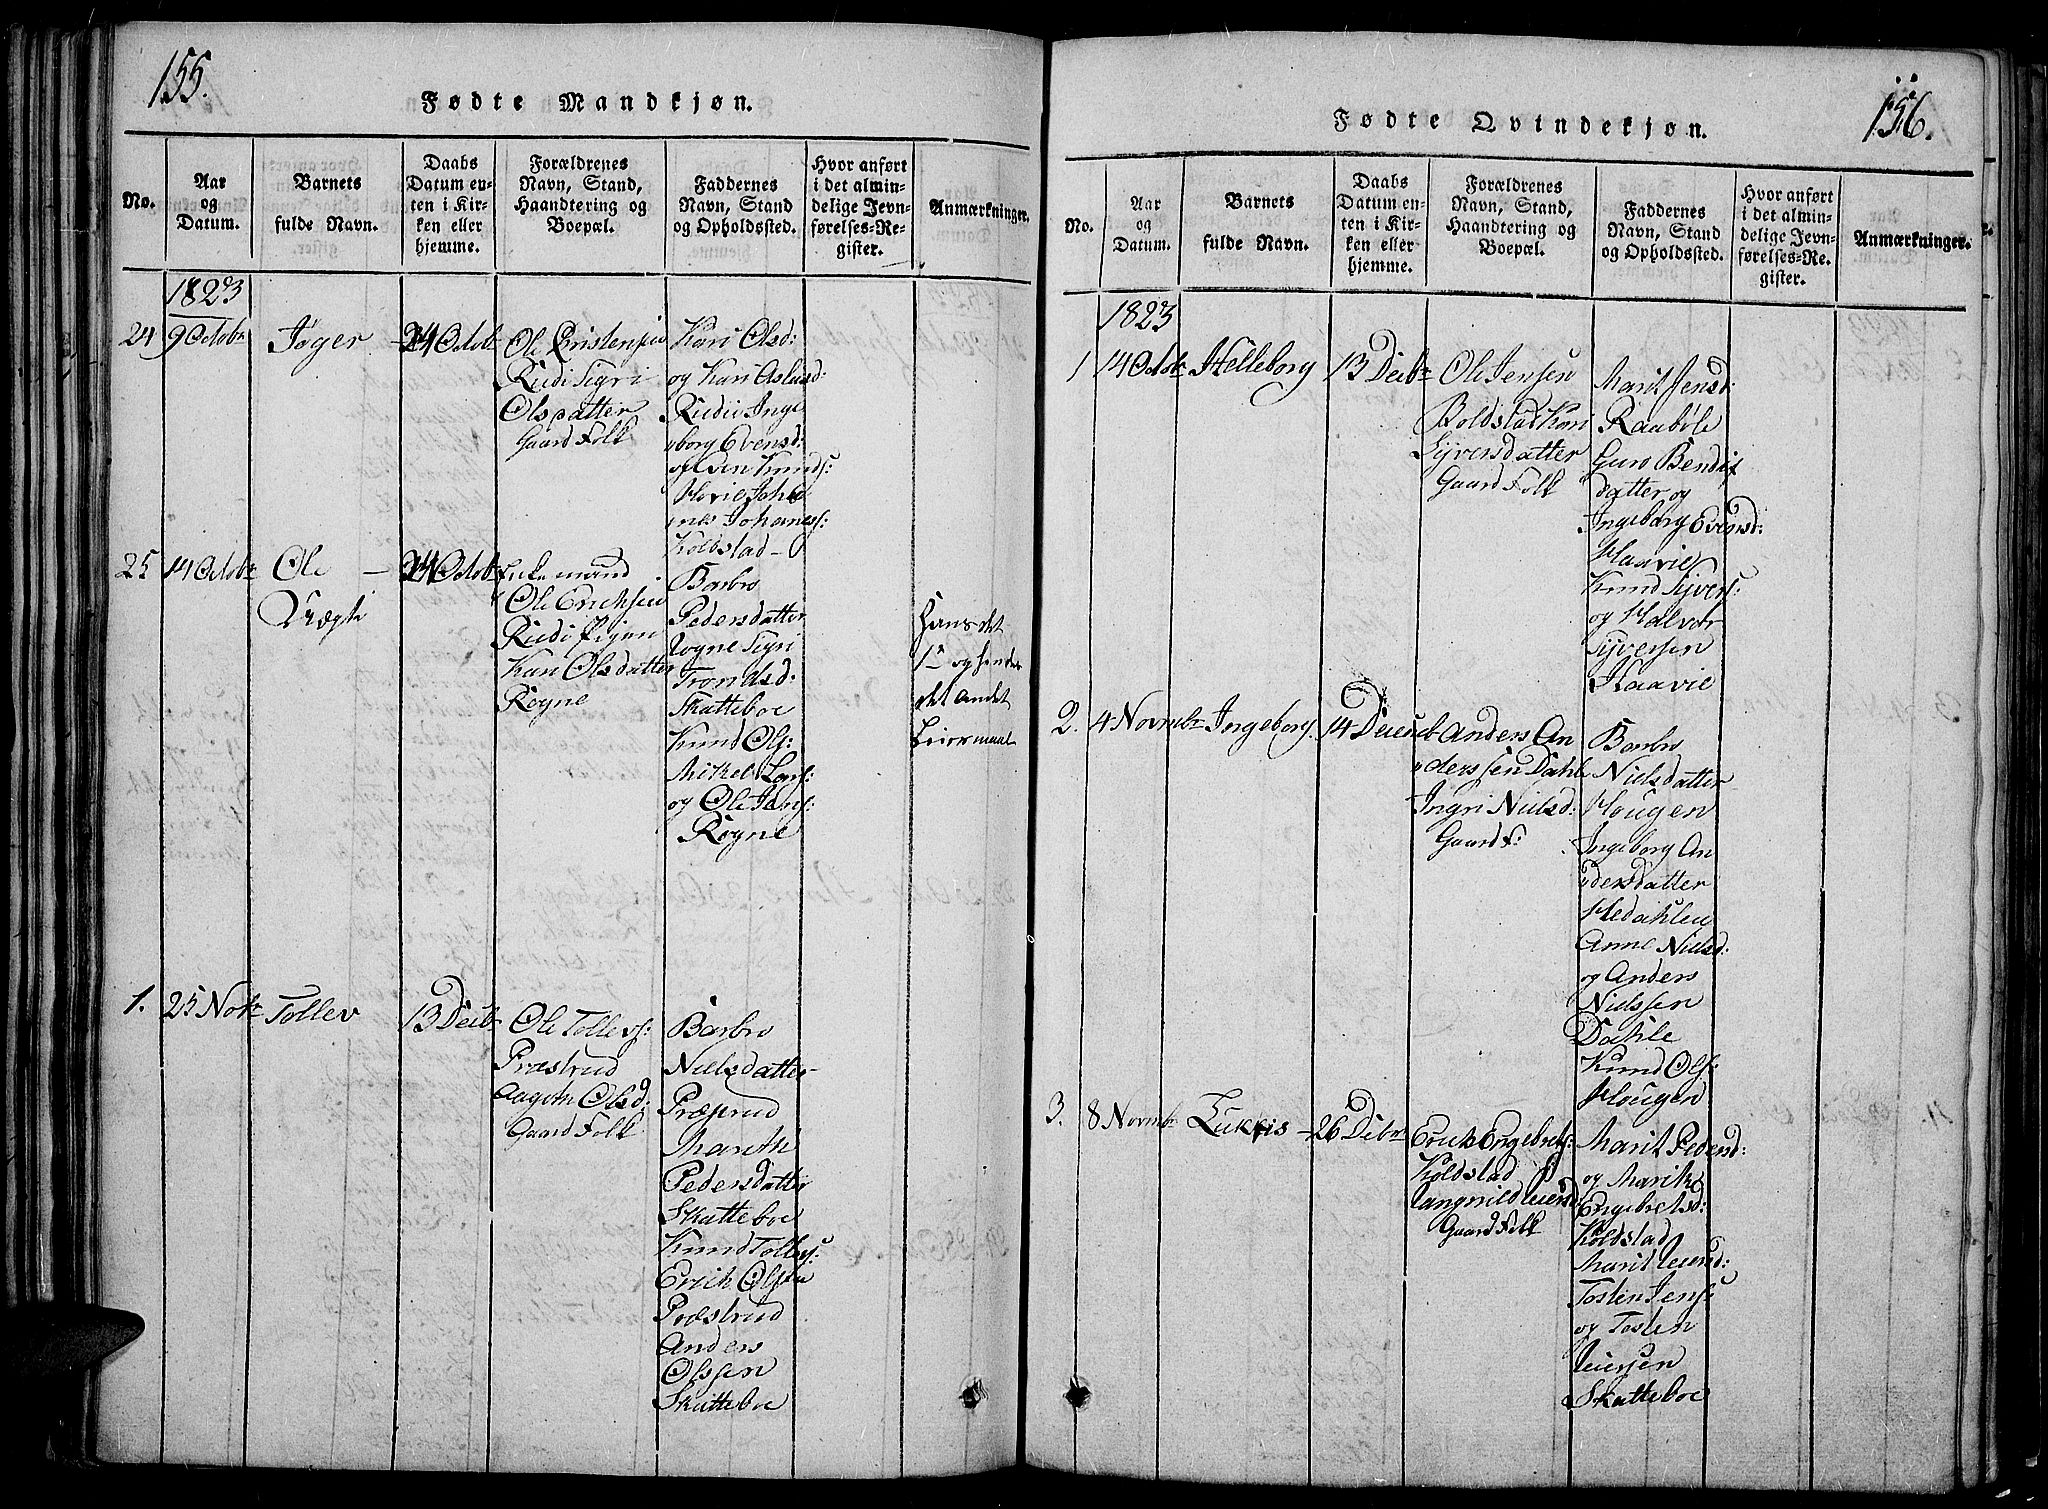 155.
Fødte Mandkjøn.
No.
Aar
og
Datum.
Barnets
fulde Navn.
Daabs
Datum en-
ten i Kir-
ken eller
hjemme.
Forældrenes
Navn, Stand,
Haandtering og
Boepæl.
Faddernes
Navn, Stand
og Opholdssted.
Hvor anført
i det almin-
delige Jevn-
førelses-Re-
gister.
Anmærkninger.
1823
24
9 Octobr
24 Octobr
Ole Cristensen
Riedi Sigri
Olspatter
Gaard Folk
Kari Olsd:
og Kari Aslasd
Riedi Inge
borg Evensd:
Johan
nes Johaness:
Koldstad
25
14 Octobr
Ole
24 Octobr
Enke mand
Ole Erichsen
Riedi Pigen
Kari Olsdatter
Rogne
Barbro
Pedersdatter
Rogne Sigri
Trondsd:
Skatteboe
Knud Ols:
Mikel Lars:
og Ole Jens:
Rogne
Hans det
1te og hendes
det andet
Leiermaal
1.
25 Nobr
Tollev
13 Decbr
Ole Tollevs:
Præstrud
Aageth Olsd:
Gaard Folk
Barbro
Nielsdatter
Præstrud
Marith
Pedersdatter
Skatteboe
Knud Tollevs:
Erich Olsen
Præstrud
Anders
Olssen
Skatteboe
156.
Fødte Qvindekjøn.
No.
Aar
og
Datum.
Barnets
fulde Navn.
Daabs
Datum en-
ten i Kir-
ken eller
hjemme.
Forældrenes
Navn, Stand,
Haandtering og
Boepæl.
Faddernes
Navn, Stand
og Opholdssted.
Hvor anført
i det almin-
delige Jevn-
førelses-Re-
gister.
Anmærkninger.
1823
1
14 Octobr
Helleborg
13 Decbr
Ole Jensen
Boldstad Kari
Syversdatter
Gaard Folk
Marit Jensd:
Raabøle
Guro Bendix
datter og
Ingeborg Evensd:
Haavie
Knud Syvers:
og Halvor
Syversen
Haavie
2.
4 Novembr
Ingeborg
14 Decemb
Anders An
derssen Dahle
Ingri Nielsd:
Gaard F:
Barbro
Nielsdatter
Hougen
Ingeborg An
dersdatter
Hedahlen
Anne Nielsd:
og Anders
Nielssen
Dahle
Knud Ols:
Hougen
3.
8 Novembr
26 Decbr
Erich Engebrets:
Koldstad
Gaard Folk
Marit Pedersd:
og Marit
Engebretsd:
Koldstad
Marit
Tosten Jens:
og Tosten
Skatteboe